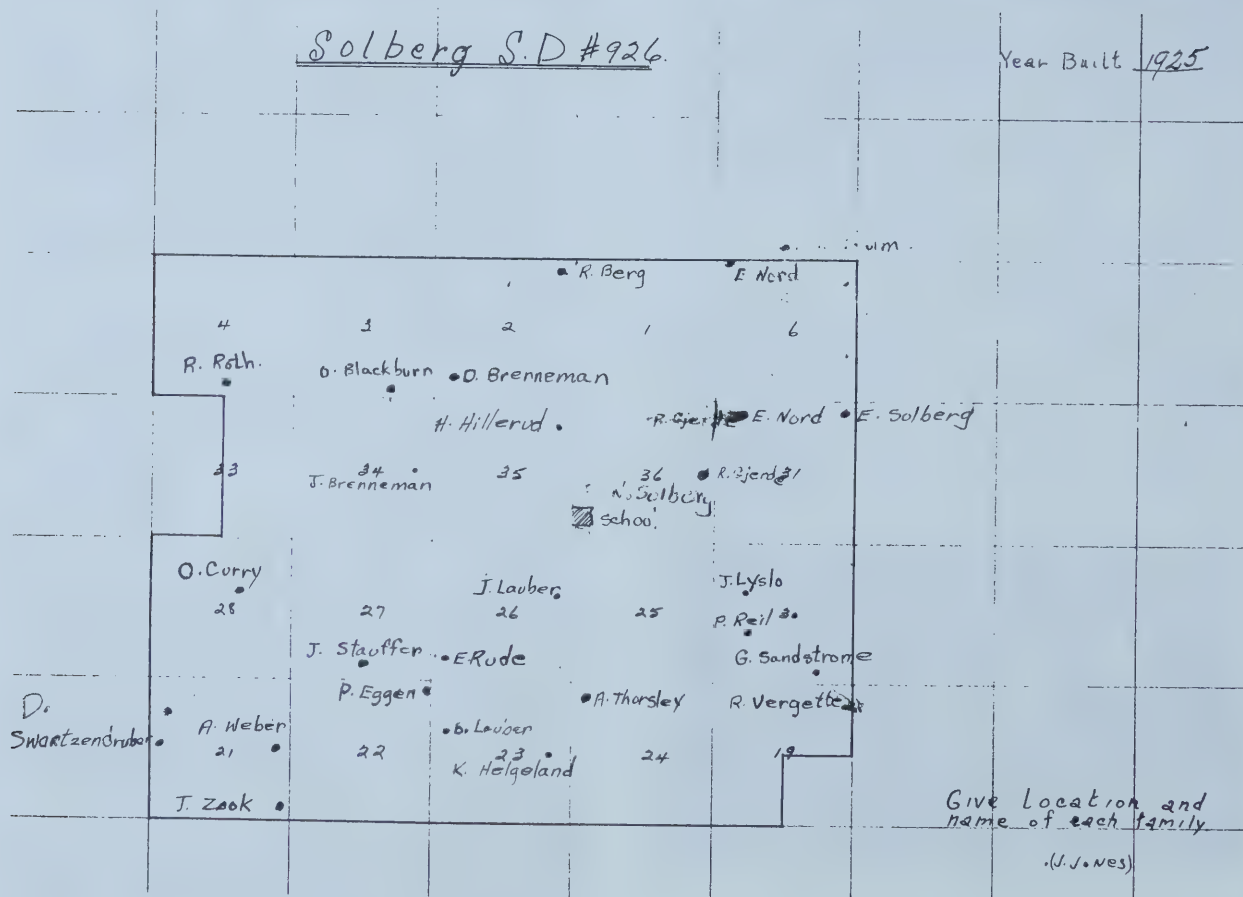 Solberg S.D #926.
Year Built 1925
R. Berg
E Nord
4 3 2 1 6
R. Roth.
O. Blackburn
D. Brenneman
H. Hillerud
E. Nord
E. Solberg
33 34 35 36 31
J. Brenneman
R. Gjerde
N. Solberg
School
O. Curry
J. Lauber
J. Lyslo
28 27 26 25
P. Reil
J. Stauffer
E Rude
G. Sandstrome
P. Eggen
A. Thorsley
R. Vergette
D.
Swartzendruber
A. Weber
D. Lauber
21 22 23 24 19
K. Helgeland
J. Zook
Give Location and
name of each family
(J. Jones)